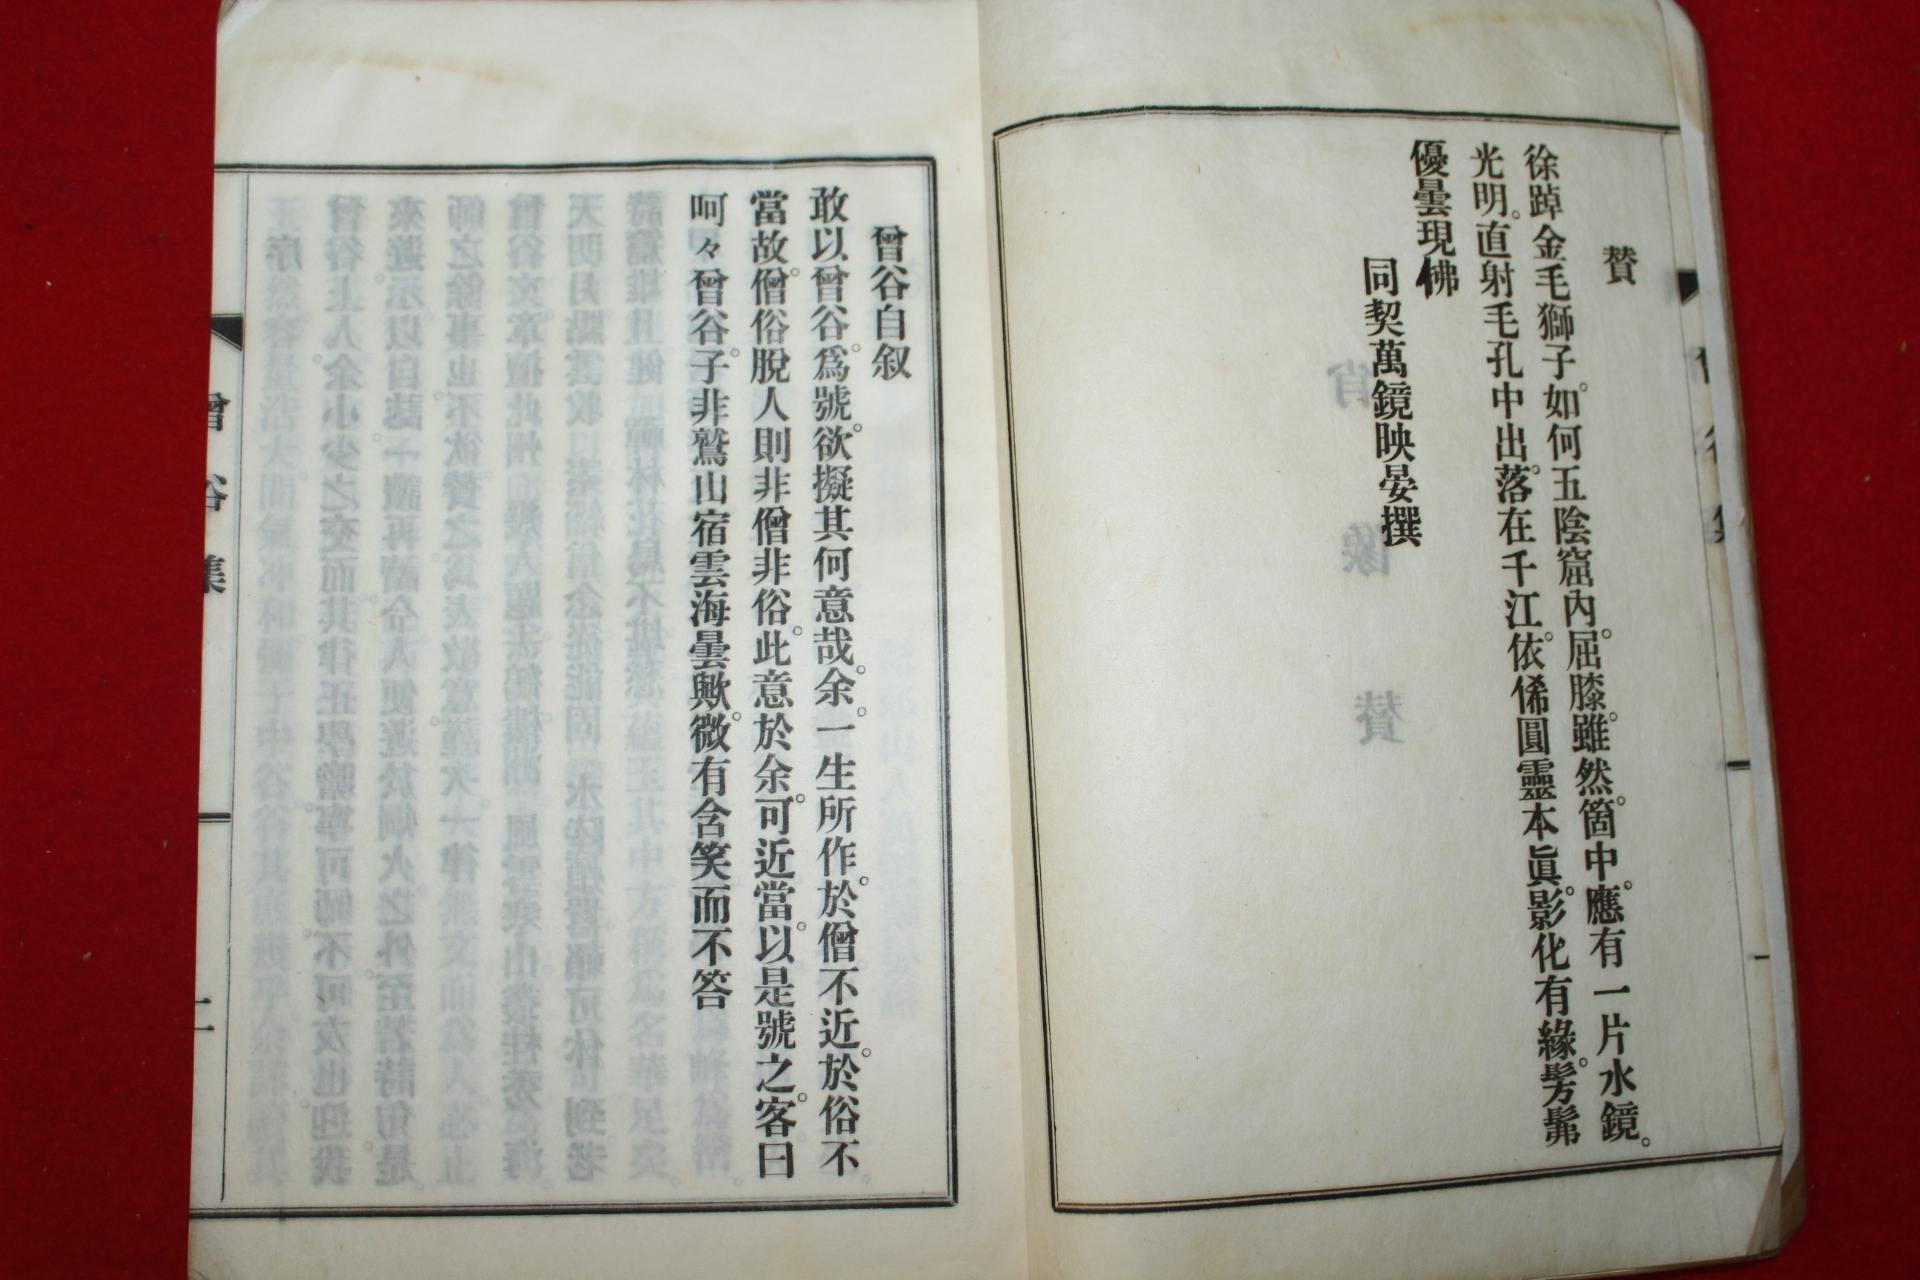 贊
徐踔金毛獅子。如何五陰窟內。屈膝。雖然。箇中。應有一片水鏡。
光明。直射毛孔中出。落在千江。依俙圓靈本眞。影化有緣。髣髴
優曇現佛
同契萬鏡映晏撰
曾谷自叙
敢以曾谷。爲號。欲擬其何意哉。余。一生所作。於僧不近。於俗不。
當故。僧俗脫人則非僧非俗。此意於余。可近當。以是號之。客曰
呵々曾谷。子非鷲山宿雲海曇歟。微有含笑而不答
曾谷集
二